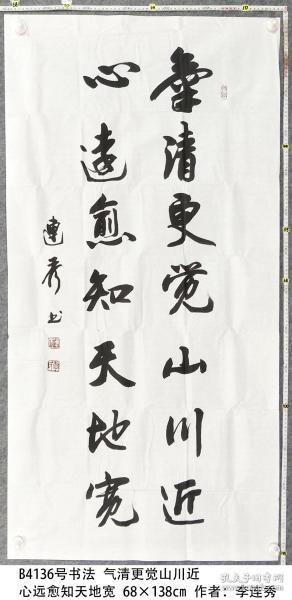 氣清更觉山川近
心遠愈知天地宽
連秀书
B4136号书法 气清更觉山川近
心远愈知天地宽 68×138cm 作者：李连秀